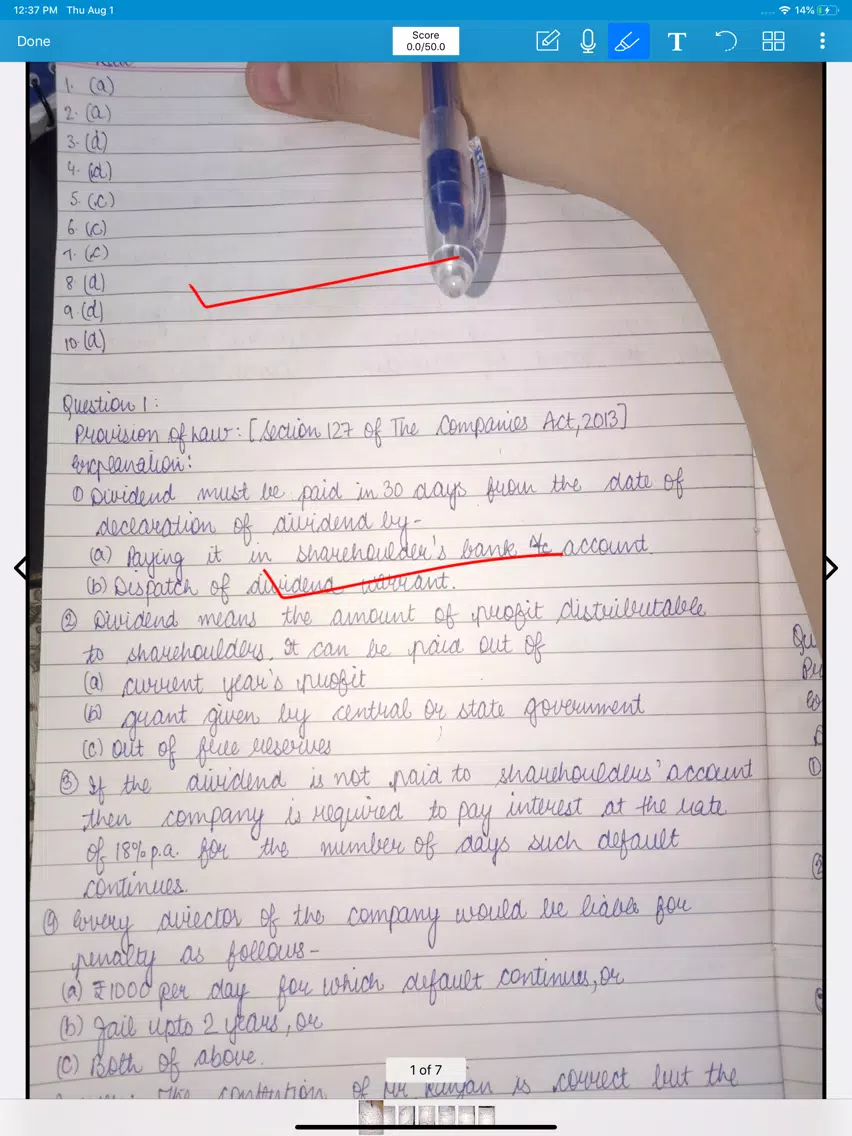 12:37 PM Thu Aug 1
14%
Done
Score
0.0/50.0
T
1. (a)
2. (a)
3. (d)
4. (d)
5. (c)
6. (c)
7. (c)
8. (d)
9. (d)
10. (d)
Question 1:
Provision of Law: [Section 127 of The Companies Act, 2013]
Explanation:
① Dividend must be paid in 30 days from the date of
declaration of dividend by-
(a) Paying it in shareholder's bank account
(b) Dispatch of dividend warrant.
② Dividend means the amount of profit distributable
to shareholders. It can be paid out of
(a) current year's profit
(b) grant given by central or state government
(c) out of free reserves
③ If the dividend is not paid to shareholders' account
then company is required to pay interest at the rate
of 18% p.a. for the number of days such default
continues.
④ Every director of the company would be liable for
penalty as follows-
(a) ₹1000 per day for which default continues, or
(b) Jail upto 2 years, or
(c) Both of above.
The contention of Mr Ranjan is correct but the
1 of 7